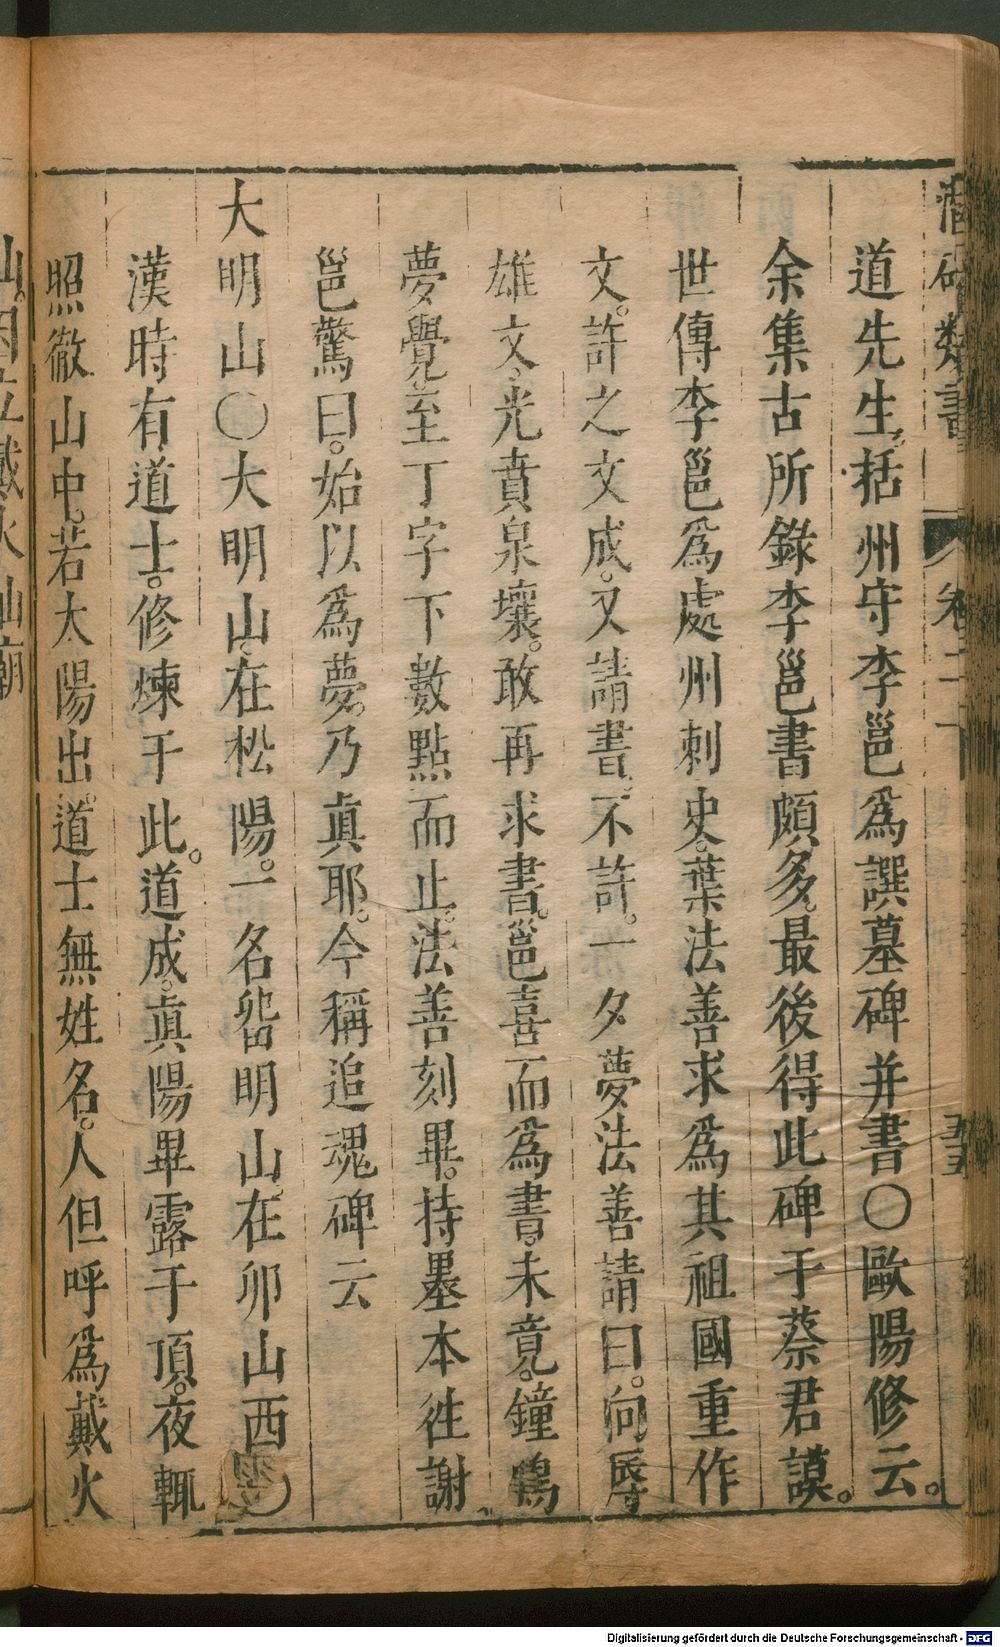 潛確類書 卷二十 五五
道先生。括州守李邕爲譔墓碑并書〇歐陽修云。
余集古所錄李邕書頗多。最後得此碑于蔡君謨。
世傳李邕爲處州刺史。葉法善求爲其祖國重作
文。許之文成。又請書。不許。一夕夢法善請曰。向辱
雄文。光賁泉壤。敢再求書。邕喜而爲書。未竟。鐘鳴
夢覺至丁字下數點而止。法善刻畢。持墨本徃謝。
邕驚曰。始以爲夢。乃眞耶。今稱追魂碑云
大明山〇大明山。在松陽。一名留明山。在卯山西
漢時有道士。修煉于此。道成。眞陽畢露于頂。夜輒
照徹山中。若太陽出。道士無姓名。人但呼爲戴火
山。因立戴火仙廟
Digitalisierung gefördert durch die Deutsche Forschungsgemeinschaft - DFG